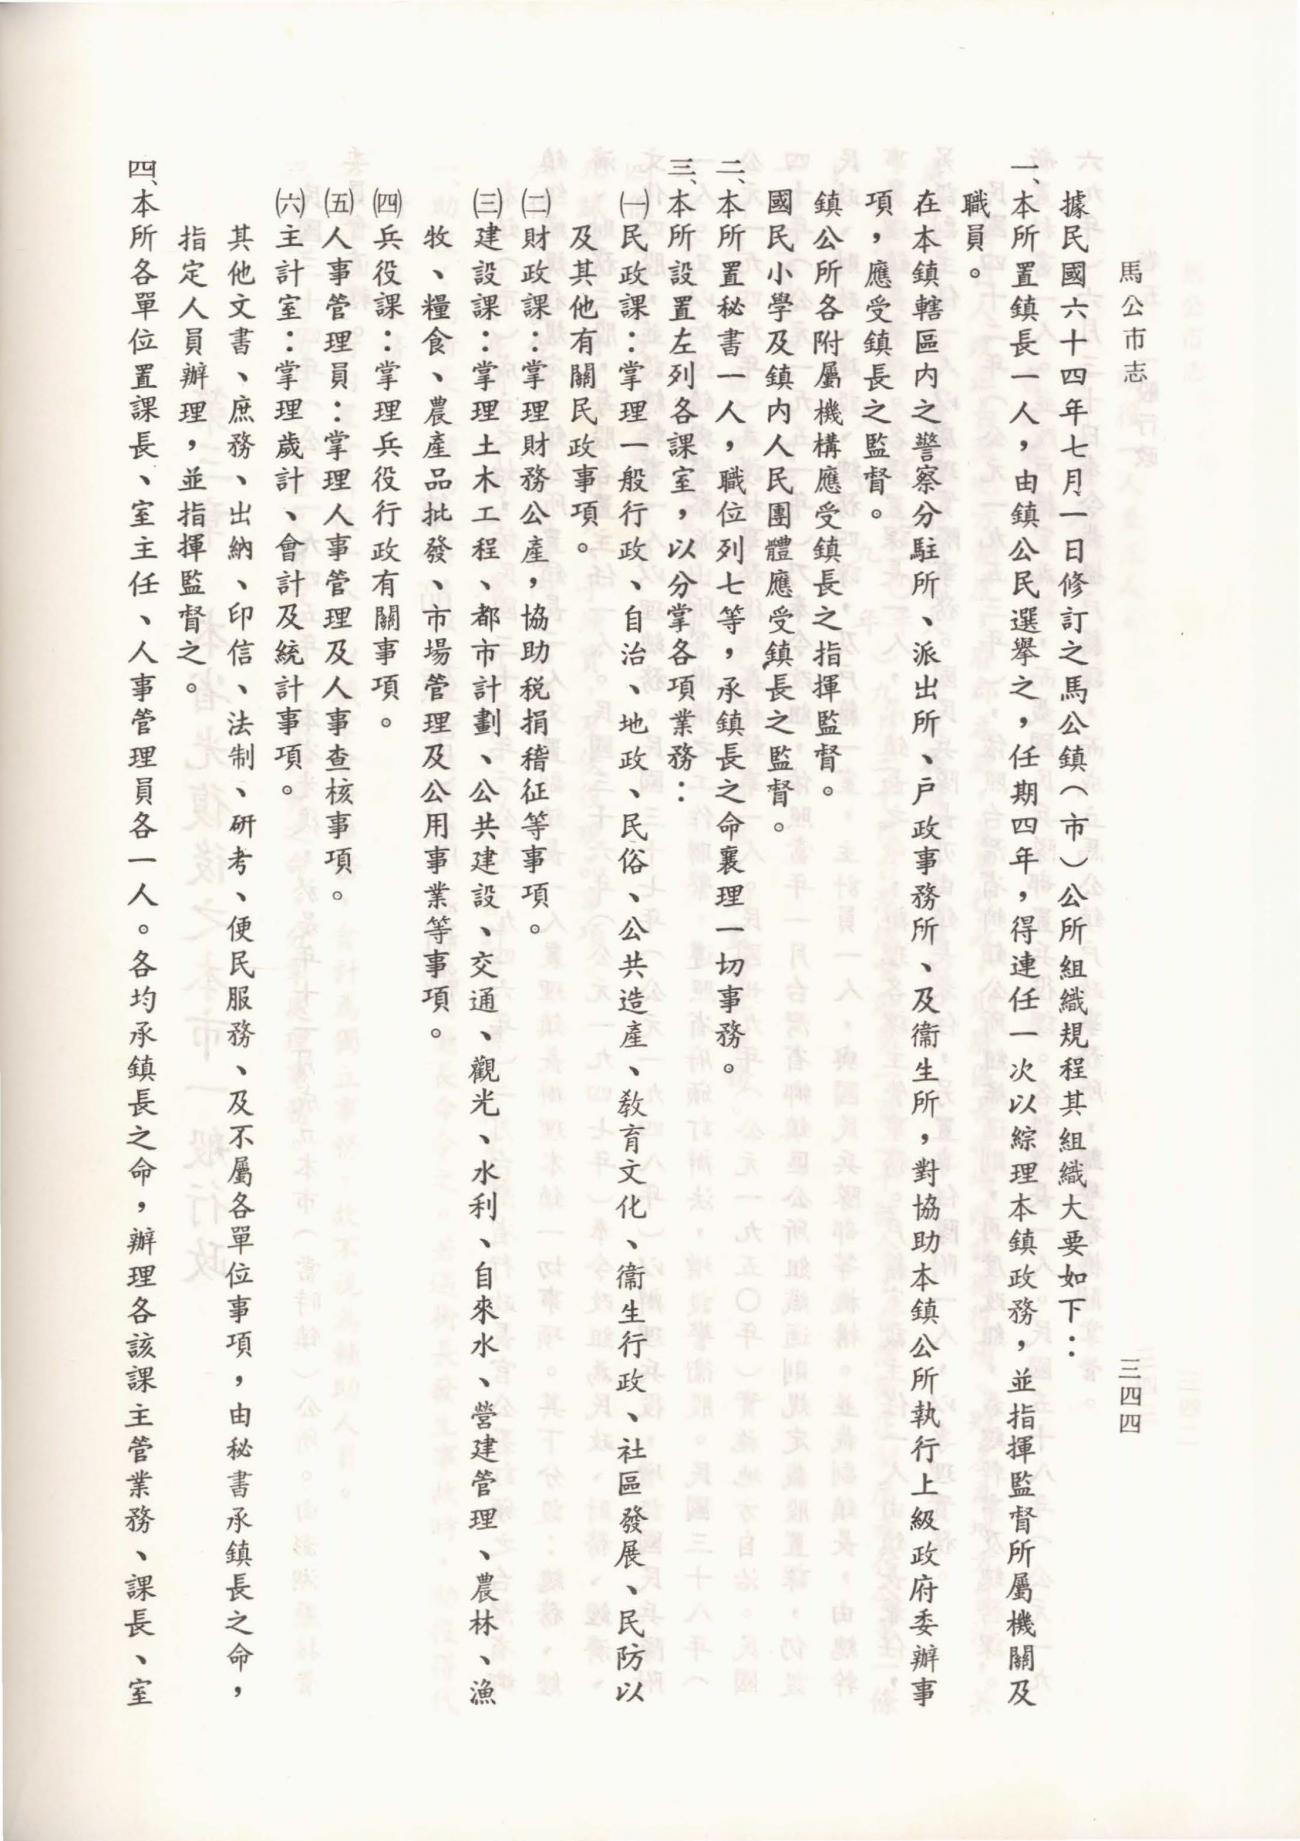 馬公市志
三四四
據民國六十四年七月一日修訂之馬公鎮（市）公所組織規程其組織大要如下：
一、本所置鎮長一人，由鎮公民選舉之，任期四年，得連任一次以綜理本鎮政務，並指揮監督所屬機關及
職員。
在本鎮轄區內之警察分駐所、派出所、戶政事務所、及衞生所，對協助本鎮公所執行上級政府委辦事
項，應受鎮長之監督。
鎮公所各附屬機構應受鎮長之指揮監督。
國民小學及鎮內人民團體應受鎮長之監督。
二、本所置秘書一人，職位列七等，承鎮長之命襄理一切事務。
三、本所設置左列各課室，以分掌各項業務：
㈠民政課：掌理一般行政、自治、地政、民俗、公共造產、敎育文化、衞生行政、社區發展、民防以
及其他有關民政事項。
㈡財政課：掌理財務公產，協助稅捐稽征等事項。
㈢建設課：掌理土木工程、都市計劃、公共建設、交通、觀光、水利、自來水、營建管理、農林、漁
牧、糧食、農產品批發、市場管理及公用事業等事項。
㈣兵役課：掌理兵役行政有關事項。
㈤人事管理員：掌理人事管理及人事查核事項。
㈥主計室：掌理歲計、會計及統計事項。
其他文書、庶務、出納、印信、法制、研考、便民服務、及不屬各單位事項，由秘書承鎮長之命，
指定人員辦理，並指揮監督之。
四、本所各單位置課長、室主任、人事管理員各一人。各均承鎮長之命，辦理各該課主管業務、課長、室